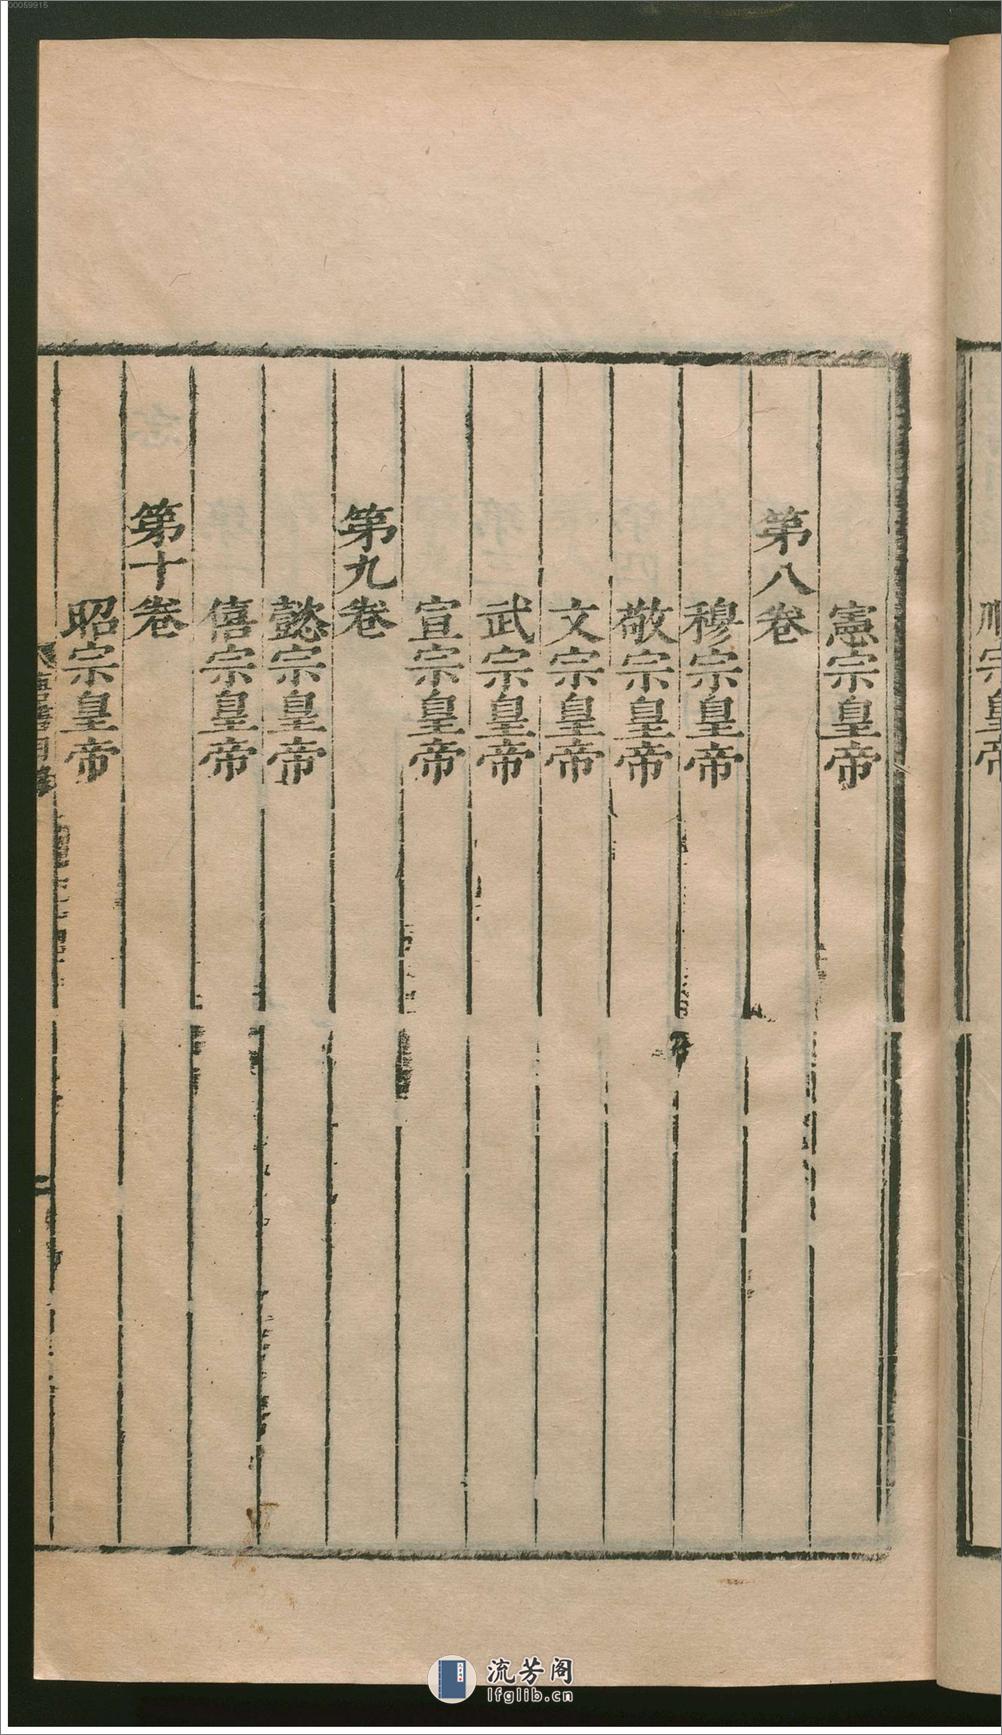 順宗皇帝
憲宗皇帝
第八卷
穆宗皇帝
敬宗皇帝
文宗皇帝
武宗皇帝
宣宗皇帝
第九卷
懿宗皇帝
僖宗皇帝
第十卷
昭宗皇帝
流芳阁
lfglib.cn